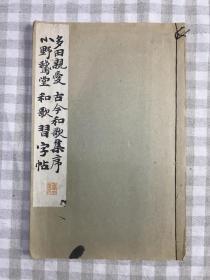 多田親愛 古今和歌集序
小野鵞堂 和歌習字帖